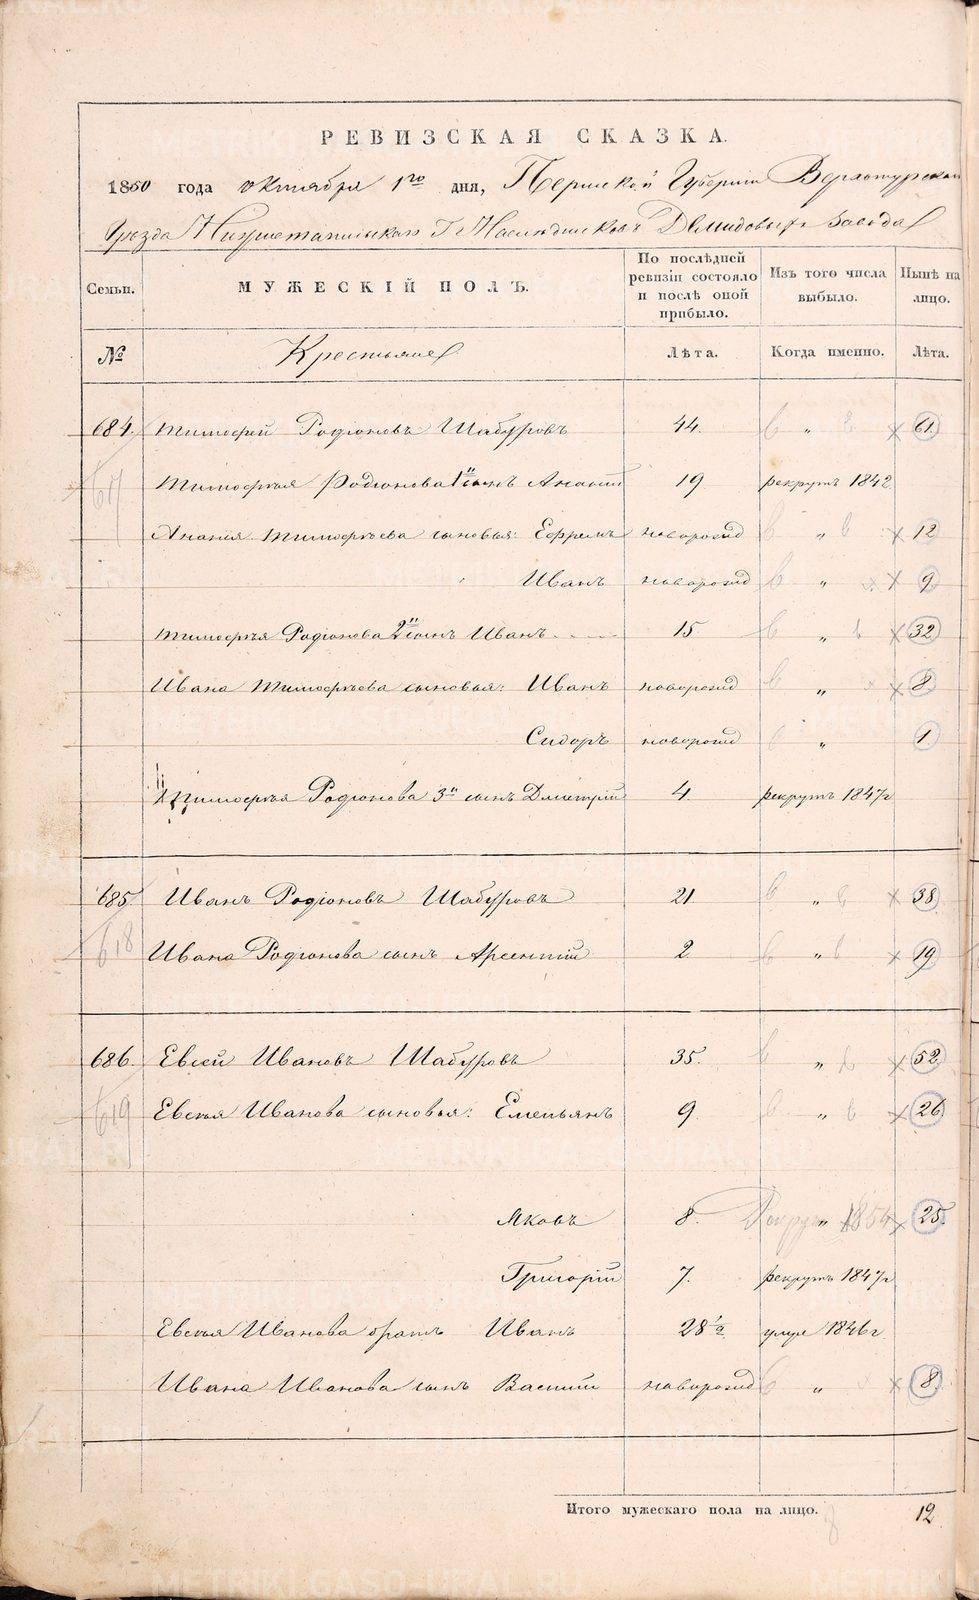 РЕВИЗСКАЯ СКАЗКА.
1850 года октября 1го дня, Пермской Губернiи Верхотурскаго
Уѣзда Нижнетагильскаго Г. Наслѣдниковъ Демидовыхъ завода
Семьи. МУЖЕСКIЙ ПОЛЪ. По послѣдней ревизiи состояло и послѣ оной прибыло. Изъ того числа выбыло. Нынѣ на лицо.
№ Крестьяне Лѣта. Когда именно. Лѣта.
684. Тимофей Родiоновъ Шабуровъ 44. " 61
617
Тимофѣя Родiонова 1й сынъ Ананiй 19 рекрутъ 1842
Ананiя Тимофѣева сыновья: Ефремъ новорожд " 12
Иванъ новорожд " 9
Тимофѣя Родiонова 2й сынъ Иванъ 15 " 32
Ивана Тимофѣева сыновья: Иванъ новорожд " 8
Сидоръ новорожд " 1
Тимофѣя Родiонова 3й сынъ Дмитрiй 4 рекрутъ 1847г
685 Иванъ Родiоновъ Шабуровъ 21 " 38
618
Ивана Родiонова сынъ Арсентiй 2 " 19
686. Евсей Ивановъ Шабуровъ 35. " 52
619
Евсѣя Иванова сыновья: Емельянъ 9 " 26
Яковъ 8. " Рекрутъ 1854 25
Григорiй 7. рекрутъ 1847г
Евсѣя Иванова братъ Иванъ 28 1/2 умре 1846г
Ивана Иванова сынъ Василiй новорожд " 8
Итого мужескаго пола на лицо. 12
METRIKI.GASO-URAL.RU